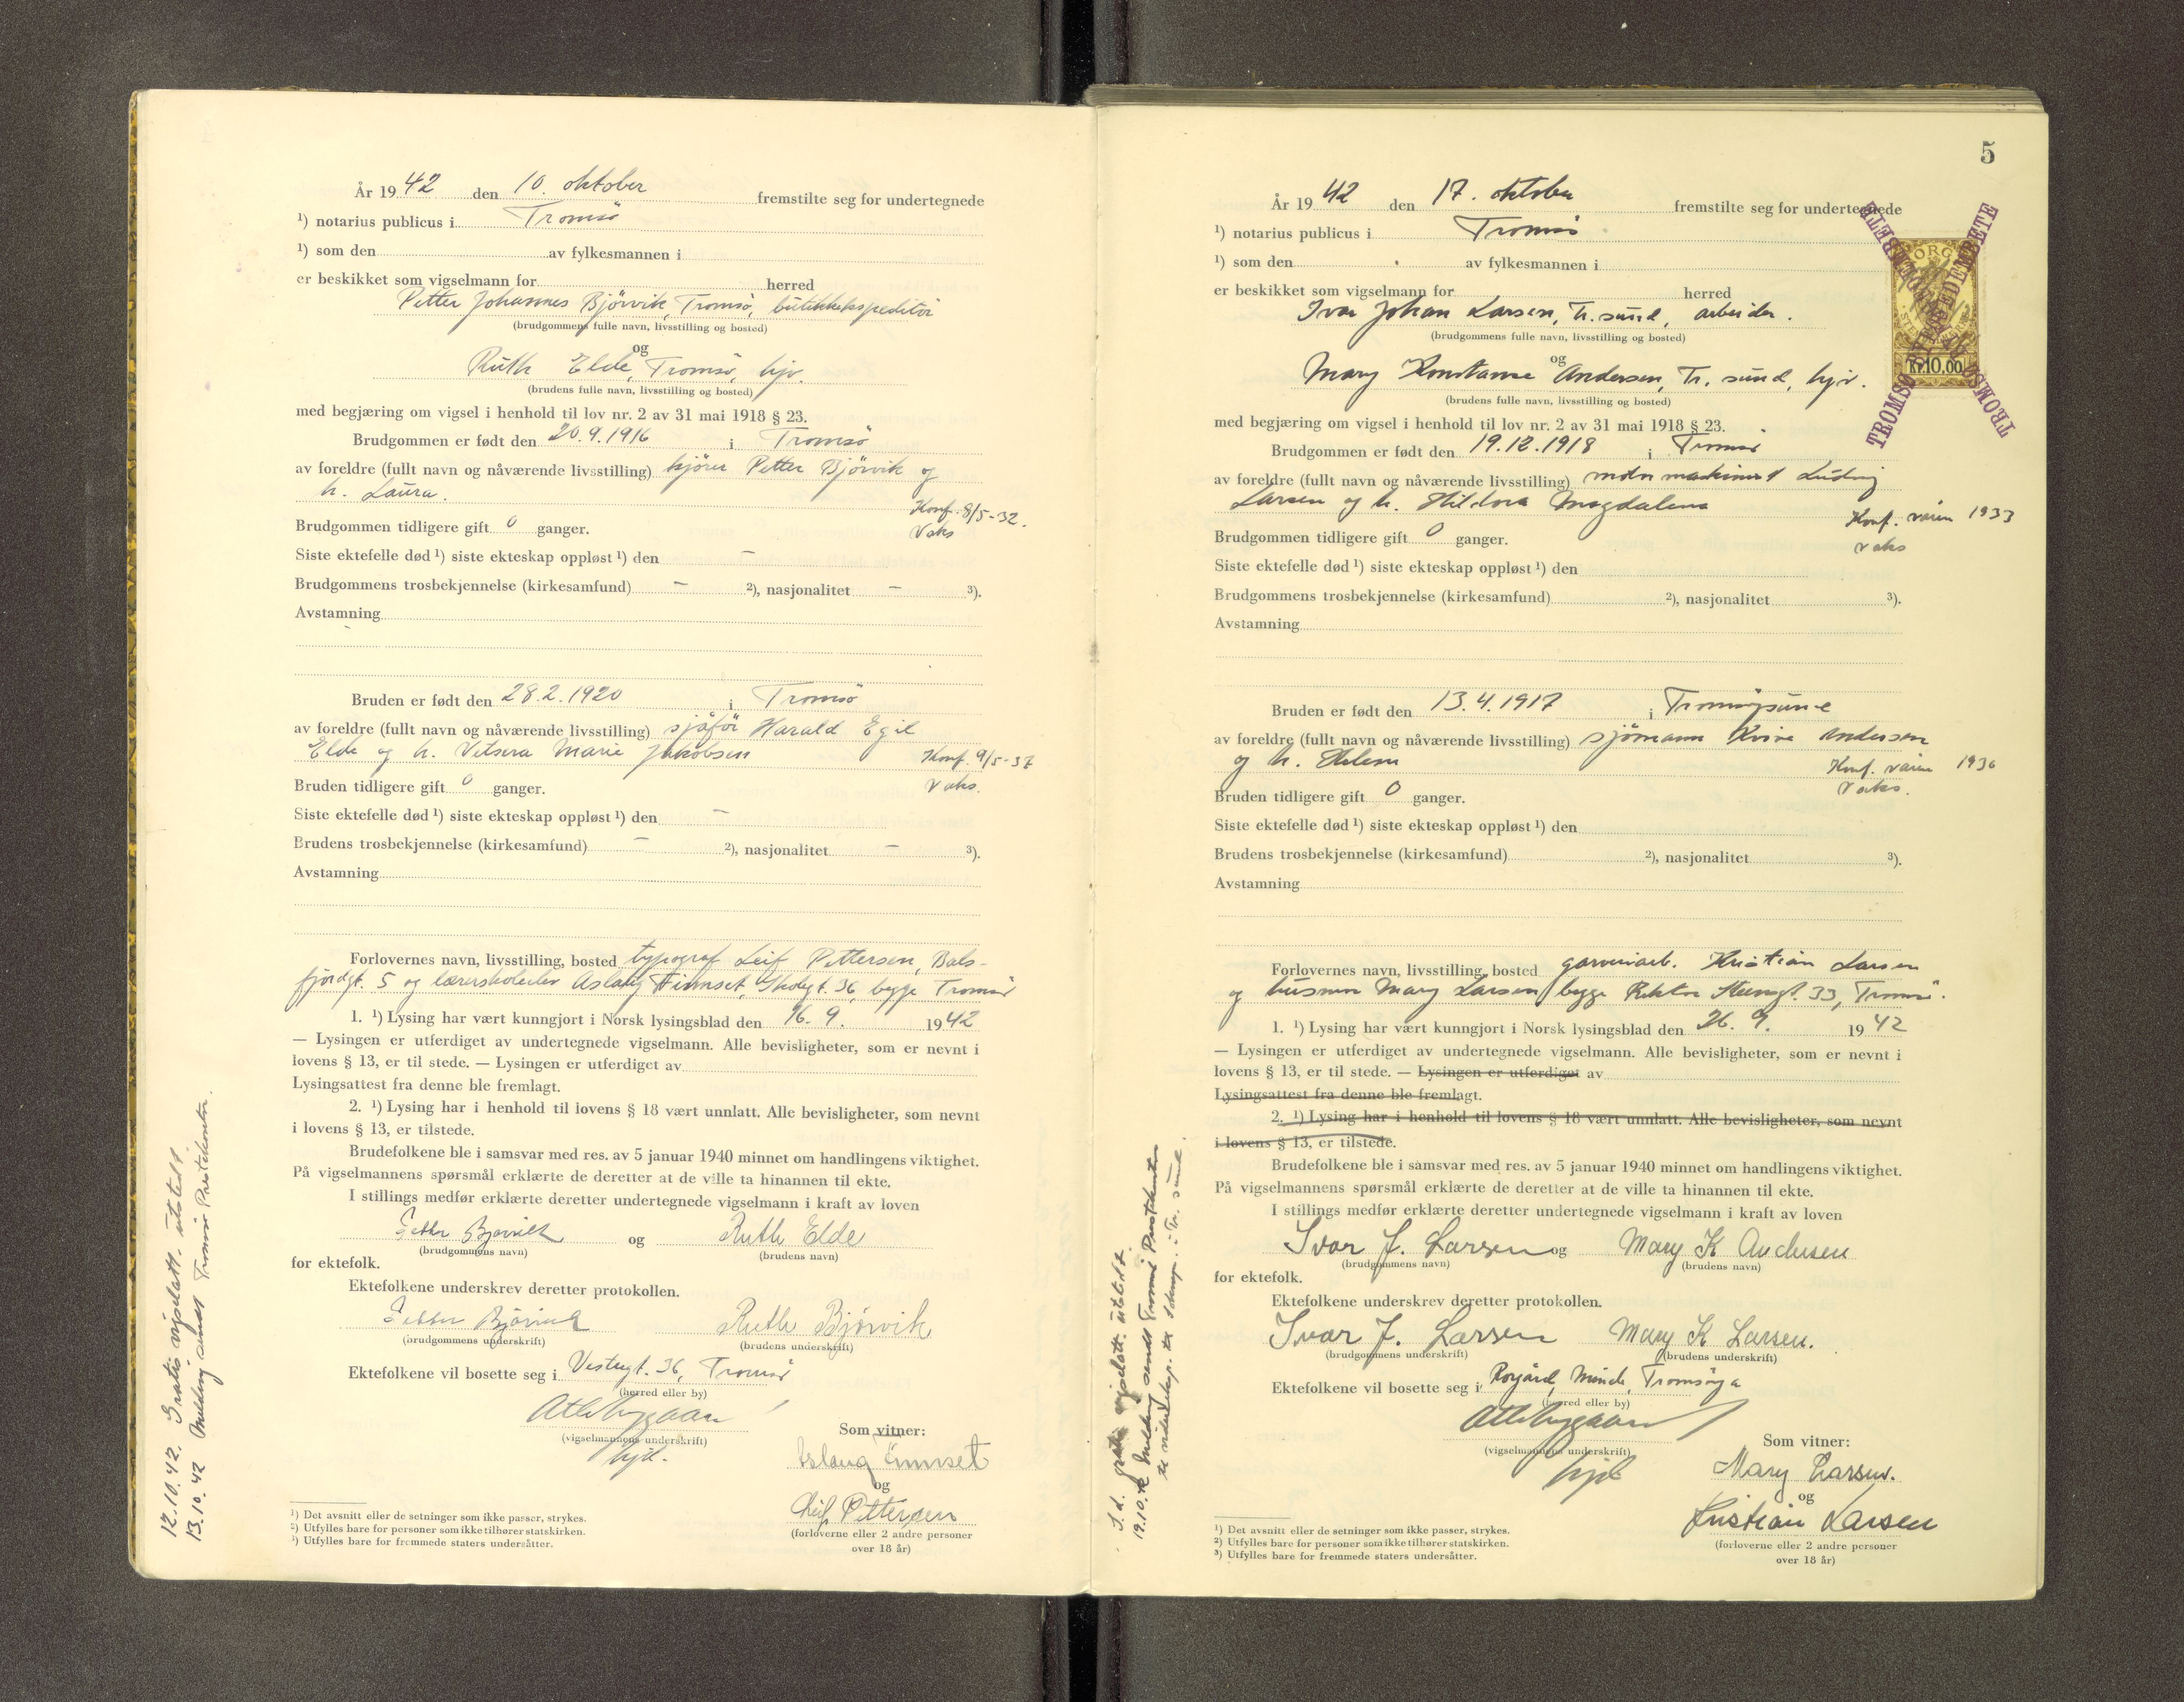 År 1942 den 10. oktober fremstilte seg for undertegnede
¹) notarius publicus i Tromsö
¹) som den av fylkesmannen i
er beskikket som vigselmann for herred
Petter Johannes Björvik, Tromsö, butikkekspeditör
(brudgommens fulle navn, livsstilling og bosted)
og
Ruth Elde, Tromsö, hjv.
(brudens fulle navn, livsstilling og bosted)
med begjæring om vigsel i henhold til lov nr. 2 av 31 mai 1918 § 23.
Brudgommen er født den 20.9.1916 i Tromsö
av foreldre (fullt navn og nåværende livsstilling) kjörer Petter Björvik og
h. Laura.
Konf. 8/5-32.
Brudgommen tidligere gift 0 ganger.
Vaks
Siste ektefelle død ¹) siste ekteskap oppløst ¹) den –
Brudgommens trosbekjennelse (kirkesamfund) – ²), nasjonalitet – ³).
Avstamning
Bruden er født den 28.2.1920 i Tromsö
av foreldre (fullt navn og nåværende livsstilling) sjåför Harald Egil
Elde og h. Vetsera Marie Jakobsen
Konf. 9/5-37
Bruden tidligere gift 0 ganger.
Vaks.
Siste ektefelle død ¹) siste ekteskap oppløst ¹) den –
Brudens trosbekjennelse (kirkesamfund) – ²), nasjonalitet – ³).
Avstamning
Forlovernes navn, livsstilling, bosted typograf Leif Pettersen, Bals-
fjordgt. 5 og lærerskoleelev Aslaug Finnset, Skolegt. 36, begge Tromsö
1. ¹) Lysing har vært kunngjort i Norsk lysingsblad den 16. 9. 1942
— Lysingen er utferdiget av undertegnede vigselmann. Alle bevisligheter, som er nevnt i
lovens § 13, er til stede. — Lysingen er utferdiget av
Lysingsattest fra denne ble fremlagt.
2. ¹) Lysing har i henhold til lovens § 18 vært unnlatt. Alle bevisligheter, som nevnt
i lovens § 13, er tilstede.
Brudefolkene ble i samsvar med res. av 5 januar 1940 minnet om handlingens viktighet.
På vigselmannens spørsmål erklærte de deretter at de ville ta hinannen til ekte.
I stillings medfør erklærte deretter undertegnede vigselmann i kraft av loven
Petter Bjørvik og Ruth Elde
(brudgommens navn) (brudens navn)
for ektefolk.
Ektefolkene underskrev deretter protokollen.
Petter Bjørvik Ruth Bjørvik
(brudgommens underskrift) (brudens underskrift)
Ektefolkene vil bosette seg i Vestregt. 36, Tromsö
(herred eller by)
(vigselmannens underskrift)
Som vitner:
Aslaug Finnset
og
Leif Pettersen
(forloverne eller 2 andre personer
over 18 år)
¹) Det avsnitt eller de setninger som ikke passer, strykes.
²) Utfylles bare for personer som ikke tilhører statskirken.
³) Utfylles bare for fremmede staters undersåtter.
12.10.42. Gratis vigselatt. utstedt.
13.10.42 Melding sendt Tromsö Prestekontor.
5
År 1942 den 17. oktober fremstilte seg for undertegnede
¹) notarius publicus i Tromsö
¹) som den av fylkesmannen i
er beskikket som vigselmann for herred
Ivar Johan Larsen, Tr. sund, arbeider.
(brudgommens fulle navn, livsstilling og bosted)
og
Mary Konstanse Andersen, Tr. sund, hjv.
(brudens fulle navn, livsstilling og bosted)
Kr. 10,00
TROMSØ STEMPLEDE
med begjæring om vigsel i henhold til lov nr. 2 av 31 mai 1918 § 23.
Brudgommen er født den 19.12.1918 i Tromsö
av foreldre (fullt navn og nåværende livsstilling) maskinist Ludvig
Larsen og h. Hildora Magdalena
Konf. våren 1933
Brudgommen tidligere gift 0 ganger.
vaks
Siste ektefelle død ¹) siste ekteskap oppløst ¹) den
Brudgommens trosbekjennelse (kirkesamfund) ²), nasjonalitet ³).
Avstamning
Bruden er født den 13.4.1917 i Tromsöysund
av foreldre (fullt navn og nåværende livsstilling) sjömann Andersen
og h. Helene
Konf. våren 1930
Bruden tidligere gift 0 ganger.
Vaks.
Siste ektefelle død ¹) siste ekteskap oppløst ¹) den
Brudens trosbekjennelse (kirkesamfund) ²), nasjonalitet ³).
Avstamning
Forlovernes navn, livsstilling, bosted garveriarb. Kristian Larsen
og husmor Mary Larsen, begge Rektor Steengt. 33, Tromsö.
1. ¹) Lysing har vært kunngjort i Norsk lysingsblad den 26. 9. 1942
— Lysingen er utferdiget av undertegnede vigselmann. Alle bevisligheter, som er nevnt i
lovens § 13, er til stede. — Lysingen er utferdiget av
Lysingsattest fra denne ble fremlagt.
2. ¹) Lysing har i henhold til lovens § 18 vært unnlatt. Alle bevisligheter, som nevnt
i lovens § 13, er tilstede.
Brudefolkene ble i samsvar med res. av 5 januar 1940 minnet om handlingens viktighet.
På vigselmannens spørsmål erklærte de deretter at de ville ta hinannen til ekte.
I stillings medfør erklærte deretter undertegnede vigselmann i kraft av loven
Ivar J. Larsen og Mary K Andersen
(brudgommens navn) (brudens navn)
for ektefolk.
Ektefolkene underskrev deretter protokollen.
Ivar J. Larsen Mary K Larsen.
(brudgommens underskrift) (brudens underskrift)
Ektefolkene vil bosette seg i Minde, Tromsöya
(herred eller by)
(vigselmannens underskrift)
Som vitner:
Mary Larsen.
og
Kristian Larsen
(forloverne eller 2 andre personer
over 18 år)
¹) Det avsnitt eller de setninger som ikke passer, strykes.
²) Utfylles bare for personer som ikke tilhører statskirken.
³) Utfylles bare for fremmede staters undersåtter.
S.d. gratis vigselatt. utstedt.
19.10.42 Melding sendt Tromsö Prestekontor